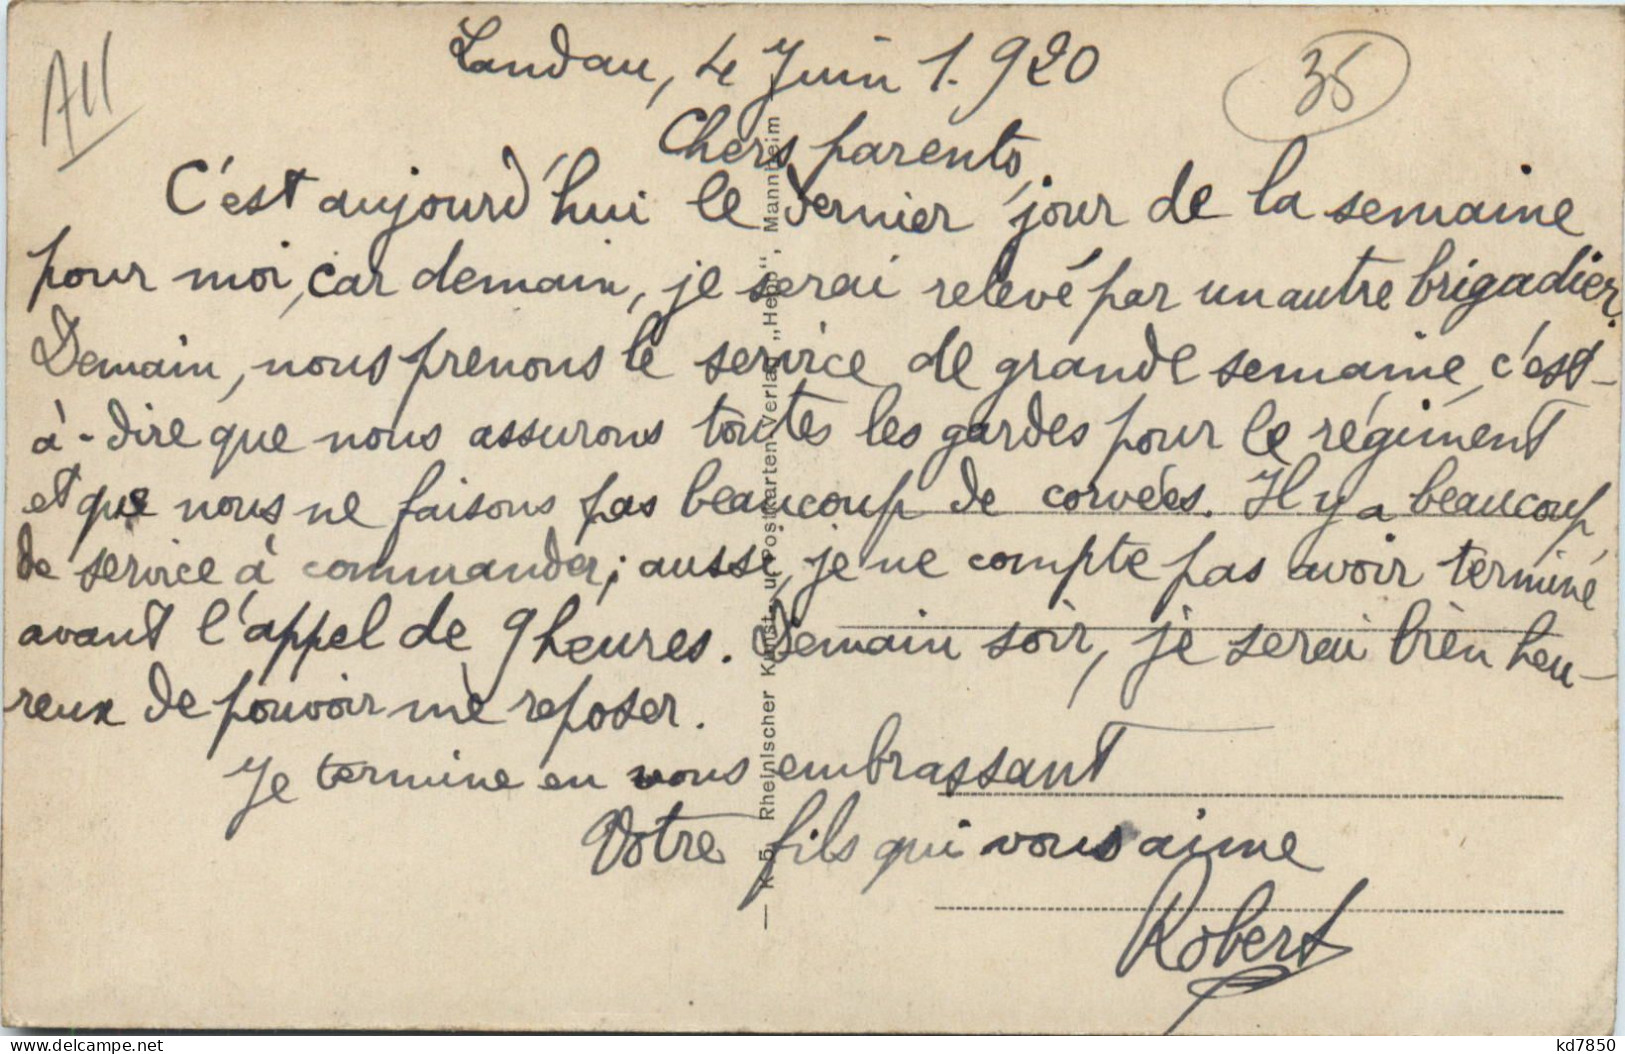 A11
35
Landau, 4 Juin 1.920
Chers parents,
C'est aujourd'hui le dernier jour de la semaine
pour moi, car demain, je serai relevé par un autre brigadier.
Demain, nous prenons le service de grande semaine, c'est-
à-dire que nous assurons toutes les gardes pour le régiment
et que nous ne faisons pas beaucoup de corvées. Il y a beaucoup
de service à commander; aussi, je ne compte pas avoir terminé
avant l'appel de 9 heures. Demain soir, je serai bien heu-
reux de pouvoir me reposer.
Je termine en vous embrassant
Votre fils qui vous aime
Robert
— K 5, Rheinischer Kunst- u. Postkarten-Verlag „Hepp“, Mannheim —
kd7850